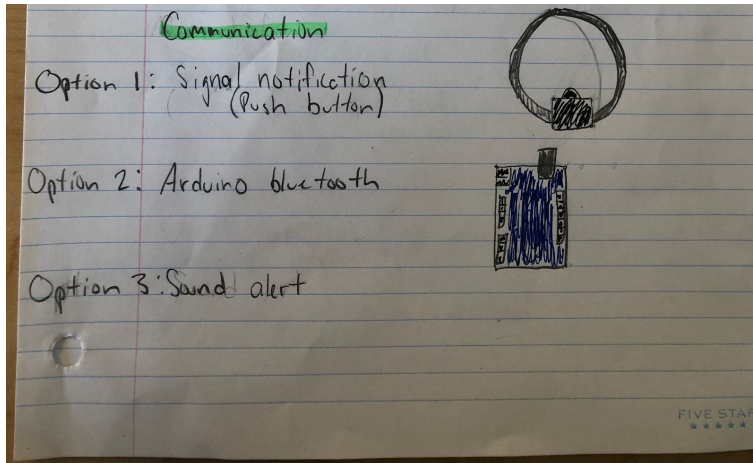 Communication
Option 1: Signal notification
(Push button)
Option 2: Arduino bluetooth
Option 3: Sound alert
FIVE STAR